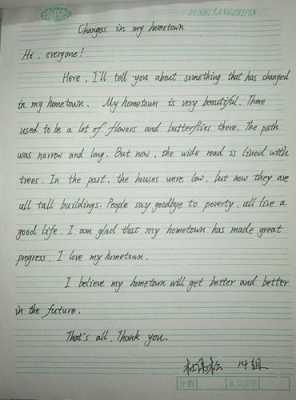 Changes in my hometown
Hi, everyone!
Here, I'll tell you about something that has changed
in my hometown. My hometown is very beautiful. There
used to be a lot of flowers and butterflies there. The path
was narrow and long. But now, the wide road is lined with
trees. In the past, the houses were low, but now they are
all tall buildings. People say goodbye to poverty, all live a
good life. I am glad that my hometown has made great
progress. I love my hometown.
I believe my hometown will get better and better
in the future.
That's all. Thank you.
14组